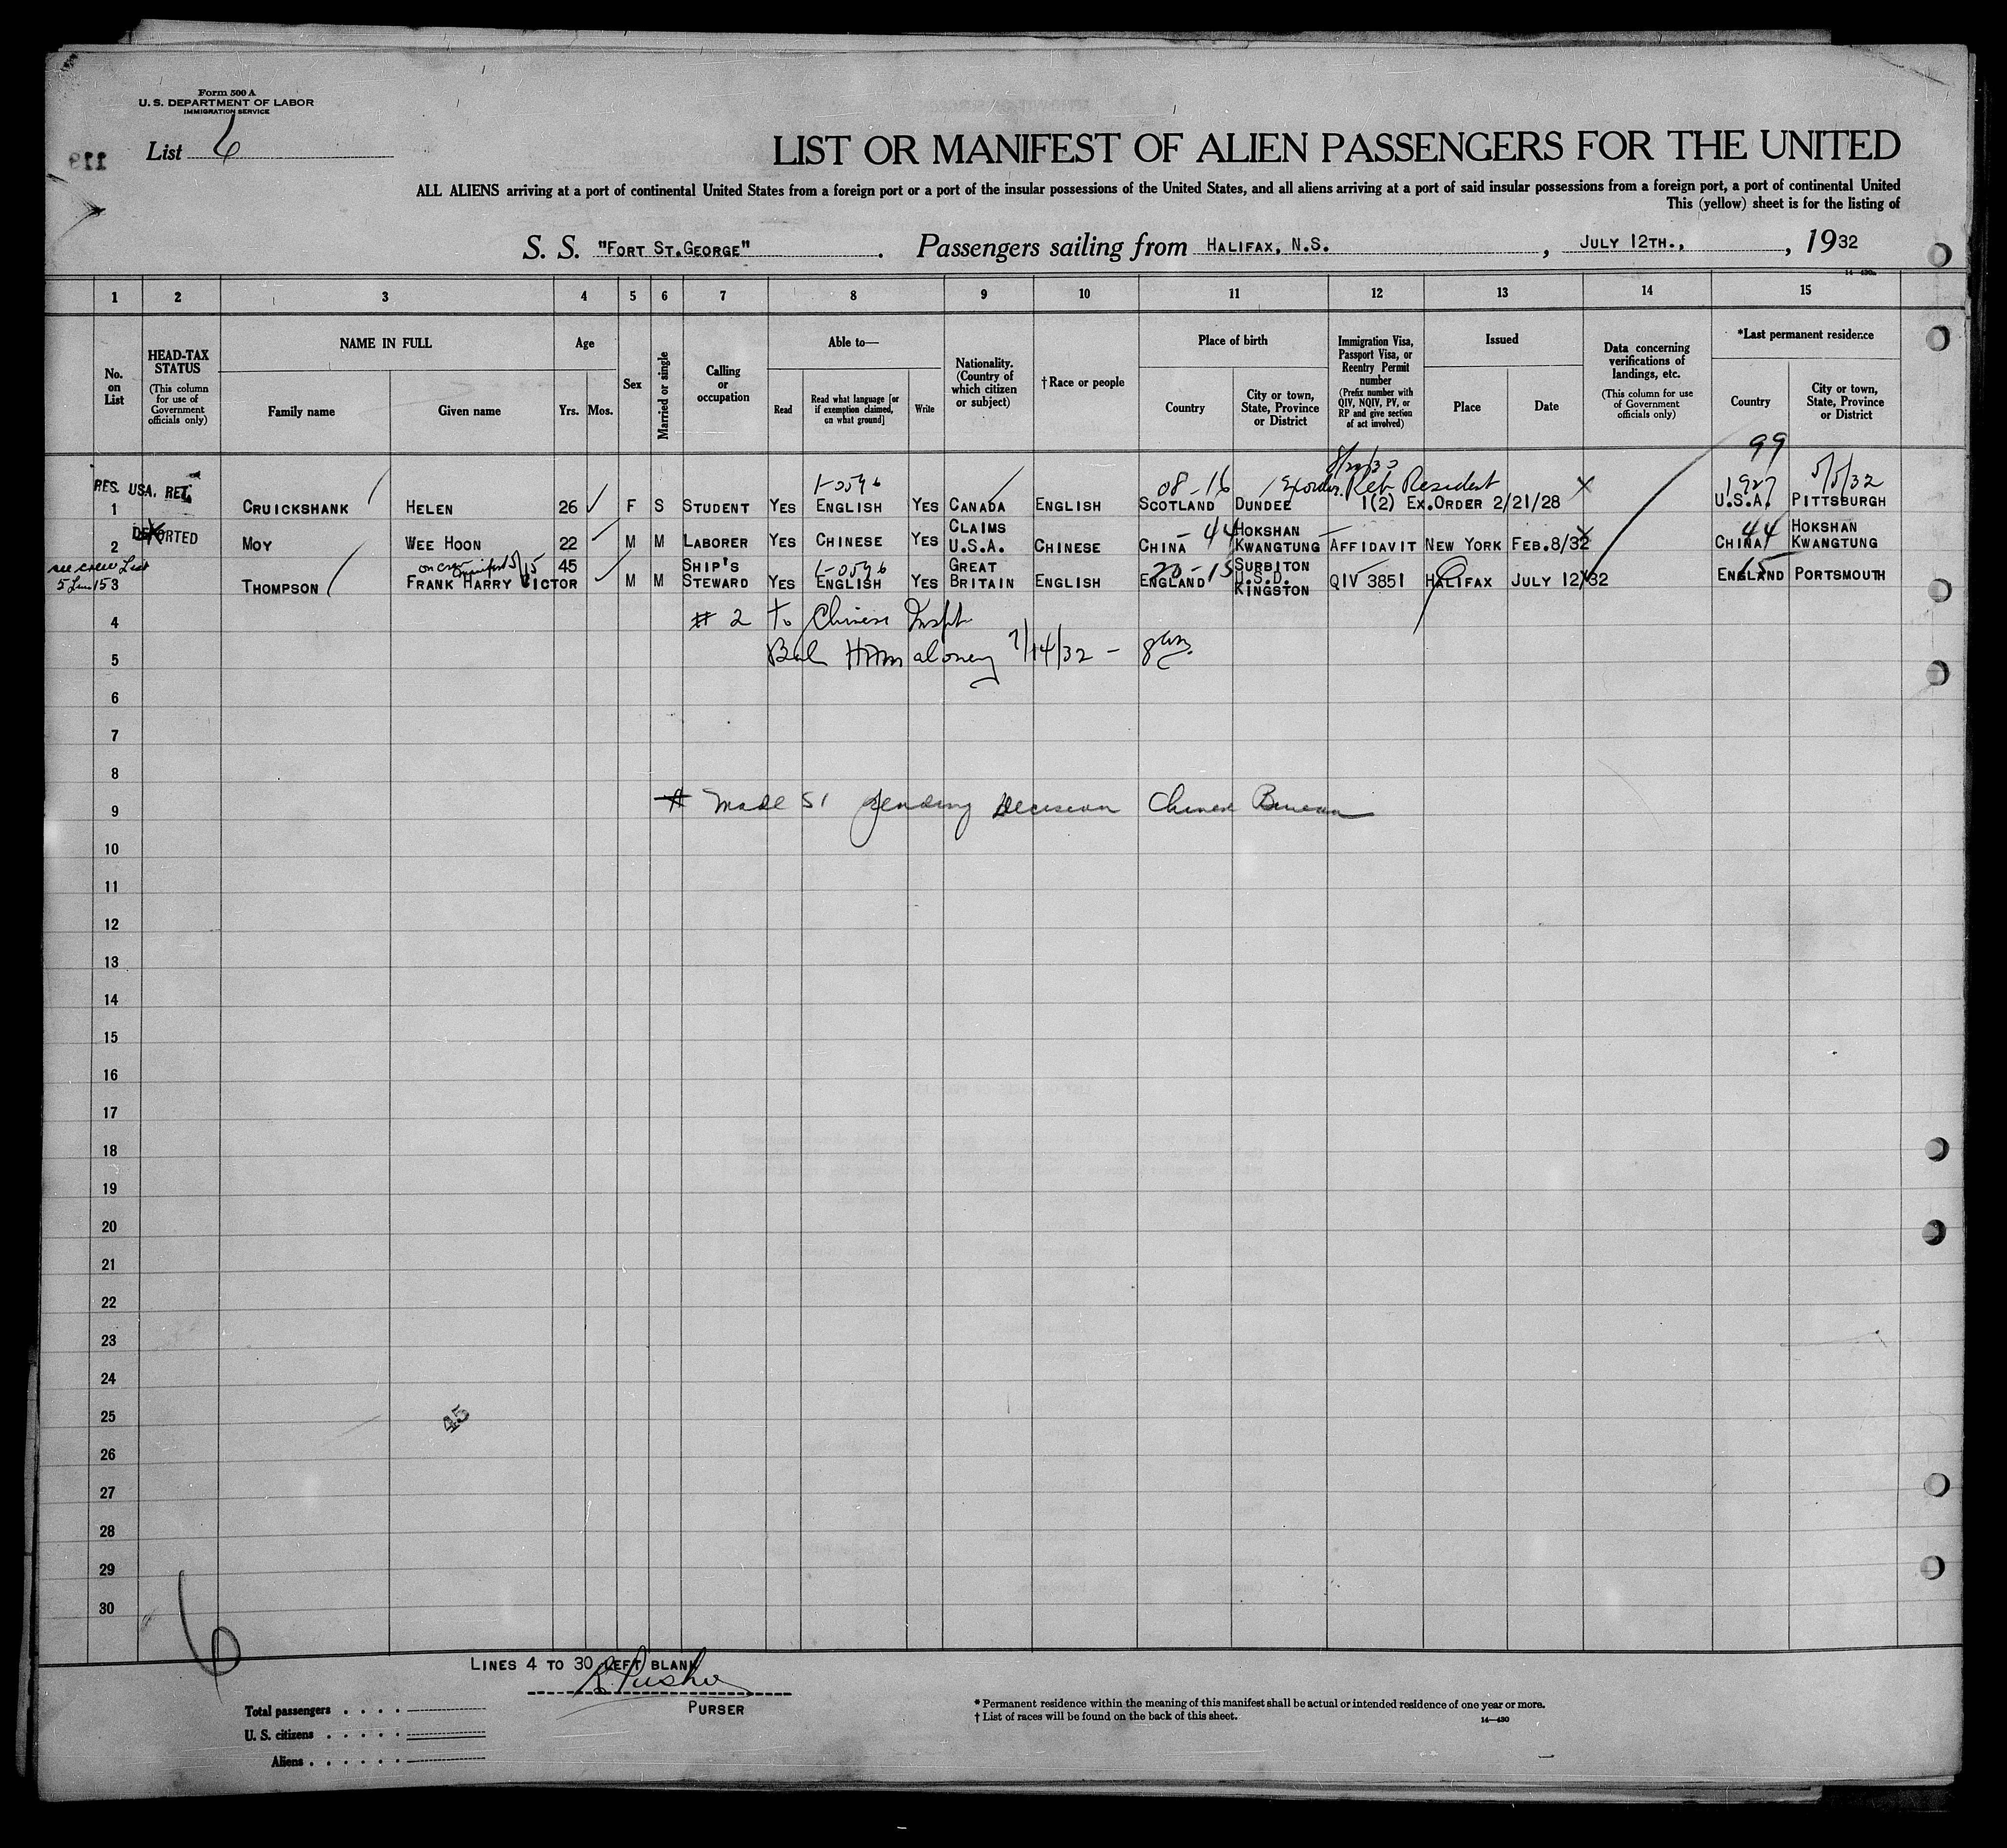 Form 500 A
U. S. DEPARTMENT OF LABOR
IMMIGRATION SERVICE
List 6
119
LIST OR MANIFEST OF ALIEN PASSENGERS FOR THE UNITED
ALL ALIENS arriving at a port of continental United States from a foreign port or a port of the insular possessions of the United States, and all aliens arriving at a port of said insular possessions from a foreign port, a port of continental United
This (yellow) sheet is for the listing of
S. S. "FORT ST.GEORGE". Passengers sailing from HALIFAX, N.S., JULY 12TH., 1932
1 2 3 4 5 6 7 8 9 10 11 12 13 14 15
No. on List
HEAD-TAX STATUS (This column for use of Government officials only)
NAME IN FULL
Family name
Given name
Age
Yrs. Mos.
Sex
Married or single
Calling or occupation
Able to—
Read
Read what language [or if exemption claimed, on what ground]
Write
Nationality. (Country of which citizen or subject)
†Race or people
Place of birth
Country
City or town, State, Province or District
Immigration Visa, Passport Visa, or Reentry Permit number (Prefix number with QIV, NQIV, PV, or RP and give section of act involved)
Issued
Place
Date
Data concerning verifications of landings, etc. (This column for use of Government officials only)
*Last permanent residence
Country
City or town, State, Province or District
99
RES. USA. RET. 08-16 Ret Resident 1927 5/5/32
1 CRUICKSHANK HELEN 26 F S STUDENT YES ENGLISH YES CANADA ENGLISH SCOTLAND DUNDEE 1(2) EX.ORDER 2/21/28 U.S.A. PITTSBURGH
DEPORTED
2 MOY WEE HOON 22 M M LABORER YES CHINESE YES CLAIMS U.S.A. CHINESE CHINA 44 HOKSHAN KWANGTUNG AFFIDAVIT NEW YORK FEB.8/32 CHINA 44 HOKSHAN KWANGTUNG
see crew List
5 Line 15
3 THOMPSON FRANK HARRY VICTOR 45 M M SHIP'S STEWARD YES ENGLISH YES GREAT BRITAIN ENGLISH ENGLAND SURBITON U.S.D. KINGSTON QIV 3851 HALIFAX JULY 12/32 ENGLAND 15 PORTSMOUTH
4 # 2 To Chinese Inspt
5 7/14/32 -
6
7
8
9 # made SI pending Decision Chinese Bureau
10
11
12
13
14
15
16
17
18
19
20
21
22
23
24
25
45
26
27
28
29
30
6
LINES 4 TO 30 LEFT BLANK
PURSER
Total passengers . . . .
U. S. citizens . . . . .
Aliens . . . . . .
* Permanent residence within the meaning of this manifest shall be actual or intended residence of one year or more.
† List of races will be found on the back of this sheet.
14—430